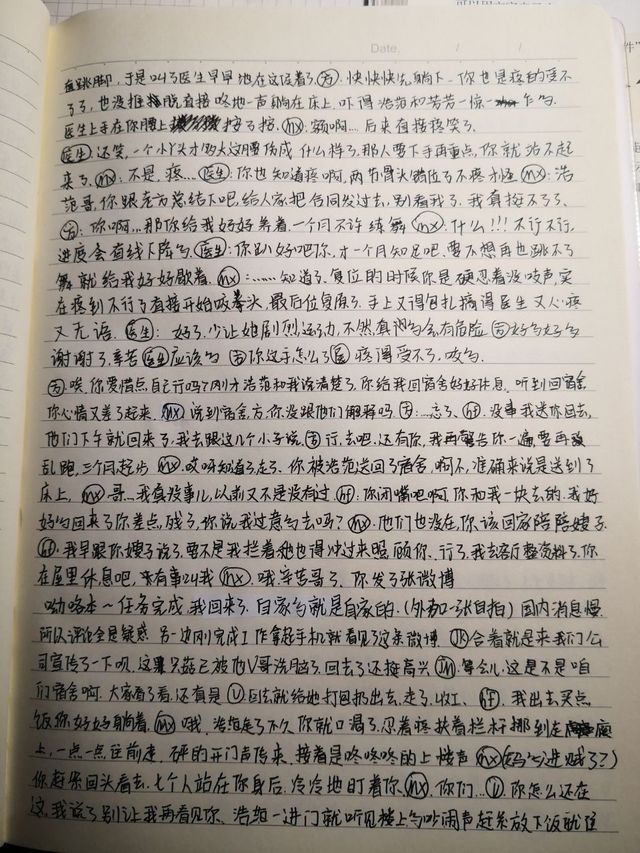 Date.
直跳脚，于是叫了医生早早地在这候着了(方)：快快快先躺下。你也是疼的受不
了了，也没推推脱直接咚地一声躺在床上，吓得浩范和芳芳一惊一乍的。
医生上手在你腰上按了按，(mx)：额啊....后来直接疼哭了。
(医生)：还笑，一个小丫头才多大这腰伤成什么样了，那人要下手再重点，你就站不起
来了，(mx)：不是，疼...(医生)：你也知道疼啊，两节骨头错位了不疼才怪(mx)：浩
范哥，你跟老方总结下吧，给人家把合同发过去，别看我了，我真挺不了了、
(方)：你啊...那你给我好好养着，一个月不许练舞(mx)：什么！！！不行不行，
进度会直线下降的、(医生)：你趴好吧你，才一个月知足吧，要不想再也跳不了
舞就给我好好歇着。(mx)：……知道了、复位的时候你是硬忍着没吱声，实
在疼到不行了直接开始咬拳头，最后位复原了，手上又得包扎搞得医生又心疼
又无语。(医生)：好了，少让她剧烈运动，不然真的会有危险(方)好的好的
谢谢了，辛苦(医生)应该的(方)你这手怎么了(医)疼得受不了，咬的、
(方)唉，你爱惜点自己行吗？刚才浩范和我说清楚了，你给我回宿舍好好休息，听到回宿舍
你心情又差了起来，(mx)说到宿舍，方，你没跟他们解释吗(方)：....忘了、(hf)：没事我送你回去，
他们下午就回来了，我去跟这几个小子说(方)行，去吧，还有你，我再警告你一遍，要再敢
乱跑，三个月起步(mx)：哎呀知道了走了、你被浩范送回了宿舍，啊不，准确来说是送到了
床上，(mx)：哥...我真没事儿，以前又不是没有过(hf)：你闭嘴吧啊，你和我一块去的，我好
好的回来了你差点残了，你说我过意的去吗？(mx)：他们也没在，你该回家陪陪嫂子
(hf)：我早跟你嫂子说了，要不是我拦着她也得冲过来照顾你、行了，我去客厅整资料了，你
在屋里休息吧，有事叫我(mx)、哦，辛苦哥了、你发了张微博
呦咯本～任务完成，我回来了，自家的就是自家的.（外加一张自拍）国内消息慢，
所以评论全是疑惑 另一边刚完成工作拿起手机就看见了这条微博 (JK)合着就是来我们公
司宣传了一下呗，这果只兹已被他V哥洗脑了，回去了还挺高兴(JM)：等会儿，这是不是咱
们宿舍啊，大家看了看，还真是(V)回去就给她打包扔出去，走了，收工、(hf)、我出去买点
饭你好好躺着、(mx)哦，浩范走了不久，你就口渴了，忍着疼扶着栏杆挪到
上，一点一点往前走，砰的开门声传来，接着是咚咚咚的上楼声(mx)（妈呀进贼了？）
你赶紧回头看去，七个人站在你身后，冷冷地盯着你(mx)、你们...(V)你怎么还在
这，我说了别让我再看见你、浩范一进门就听见楼上的吵闹声赶紧放下饭就往